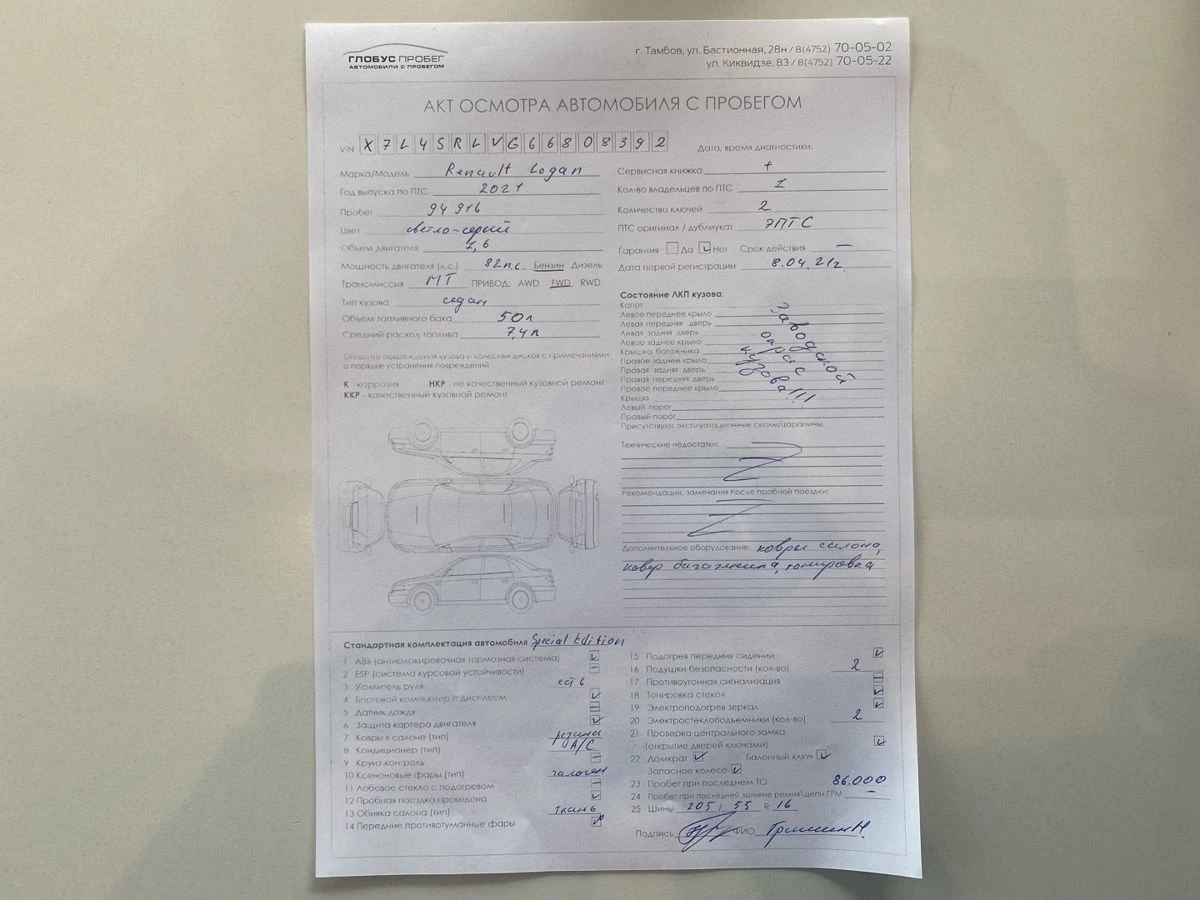 ГЛОБУС ПРОБЕГ
АВТОМОБИЛИ С ПРОБЕГОМ
г. Тамбов, ул. Бастионная, 28н / 8(4752) 70-05-02
ул. Киквидзе, 83 / 8(4752) 70-05-22
АКТ ОСМОТРА АВТОМОБИЛЯ С ПРОБЕГОМ
VIN X7L4SRLVG66808392
Дата, время диагностики:
Марка/Модель Renault Logan
Год выпуска по ПТС 2021
Пробег 94 916
Цвет светло-серый
Объем двигателя 1,6
Мощность двигателя (л.с.) 82 л.с. Бензин Дизель
Трансмиссия МТ ПРИВОД: AWD FWD RWD
Тип кузова седан
Объем топливного бака 50 л
Средний расход топлива 7,4 л
Сервисная книжка +
Кол-во владельцев по ПТС 1
Количество ключей 2
ПТС оригинал / дубликат ЭПТС
Гарантия Да Нет Срок действия —
Дата первой регистрации 8.04.21г.
Опишите повреждения кузова и колесных дисков с примечаниями
о порядке устранения повреждений
К коррозия НКР - не качественный кузовной ремонт
ККР - качественный кузовной ремонт
Состояние ЛКП кузова:
Капот
Левое переднее крыло
Левая передняя дверь
Левая задняя дверь
Левое заднее крыло
Крышка багажника
Правое заднее крыло
Правая задняя дверь
Правая передняя дверь
Правое переднее крыло
Крыша
Левый порог
Правый порог
Заводской
окрас
кузова!!!
Присутствуют эксплуатационные сколы/царапины.
Технические недостатки:
Рекомендации, замечания после пробной поездки:
Дополнительное оборудование: ковры салона,
ковер багажника, тонировка
Стандартная комплектация автомобиля Special Edition
1 ABS (антиблокировочная тормозная система)
2 ESP (система курсовой устойчивости) —
3 Усилитель руля есть
4 Бортовой компьютер с дисплеем
5 Датчик дождя —
6 Защита картера двигателя
7 Ковры в салоне (тип) резина
8 Кондиционер (тип) A/C
9 Круиз контроль —
10 Ксеноновые фары (тип) галоген
11 Лобовое стекло с подогревом —
12 Пробная поездка проведена
13 Обивка салона (тип) ткань
14 Передние противотуманные фары
15 Подогрев передних сидений
16 Подушки безопасности (кол-во) 2
17 Противоугонная сигнализация —
18 Тонировка стекол
19 Электроподогрев зеркал
20 Электростеклоподъемники (кол-во) 2
21 Проверка центрального замка
(открытие дверей ключами)
22 Домкрат Балонный ключ
Запасное колесо
23 Пробег при последнем ТО 86.000
24 Пробег при последней замене ремня\цепи ГРМ —
25 Шины 205 / 55 R 16
Подпись ФИО